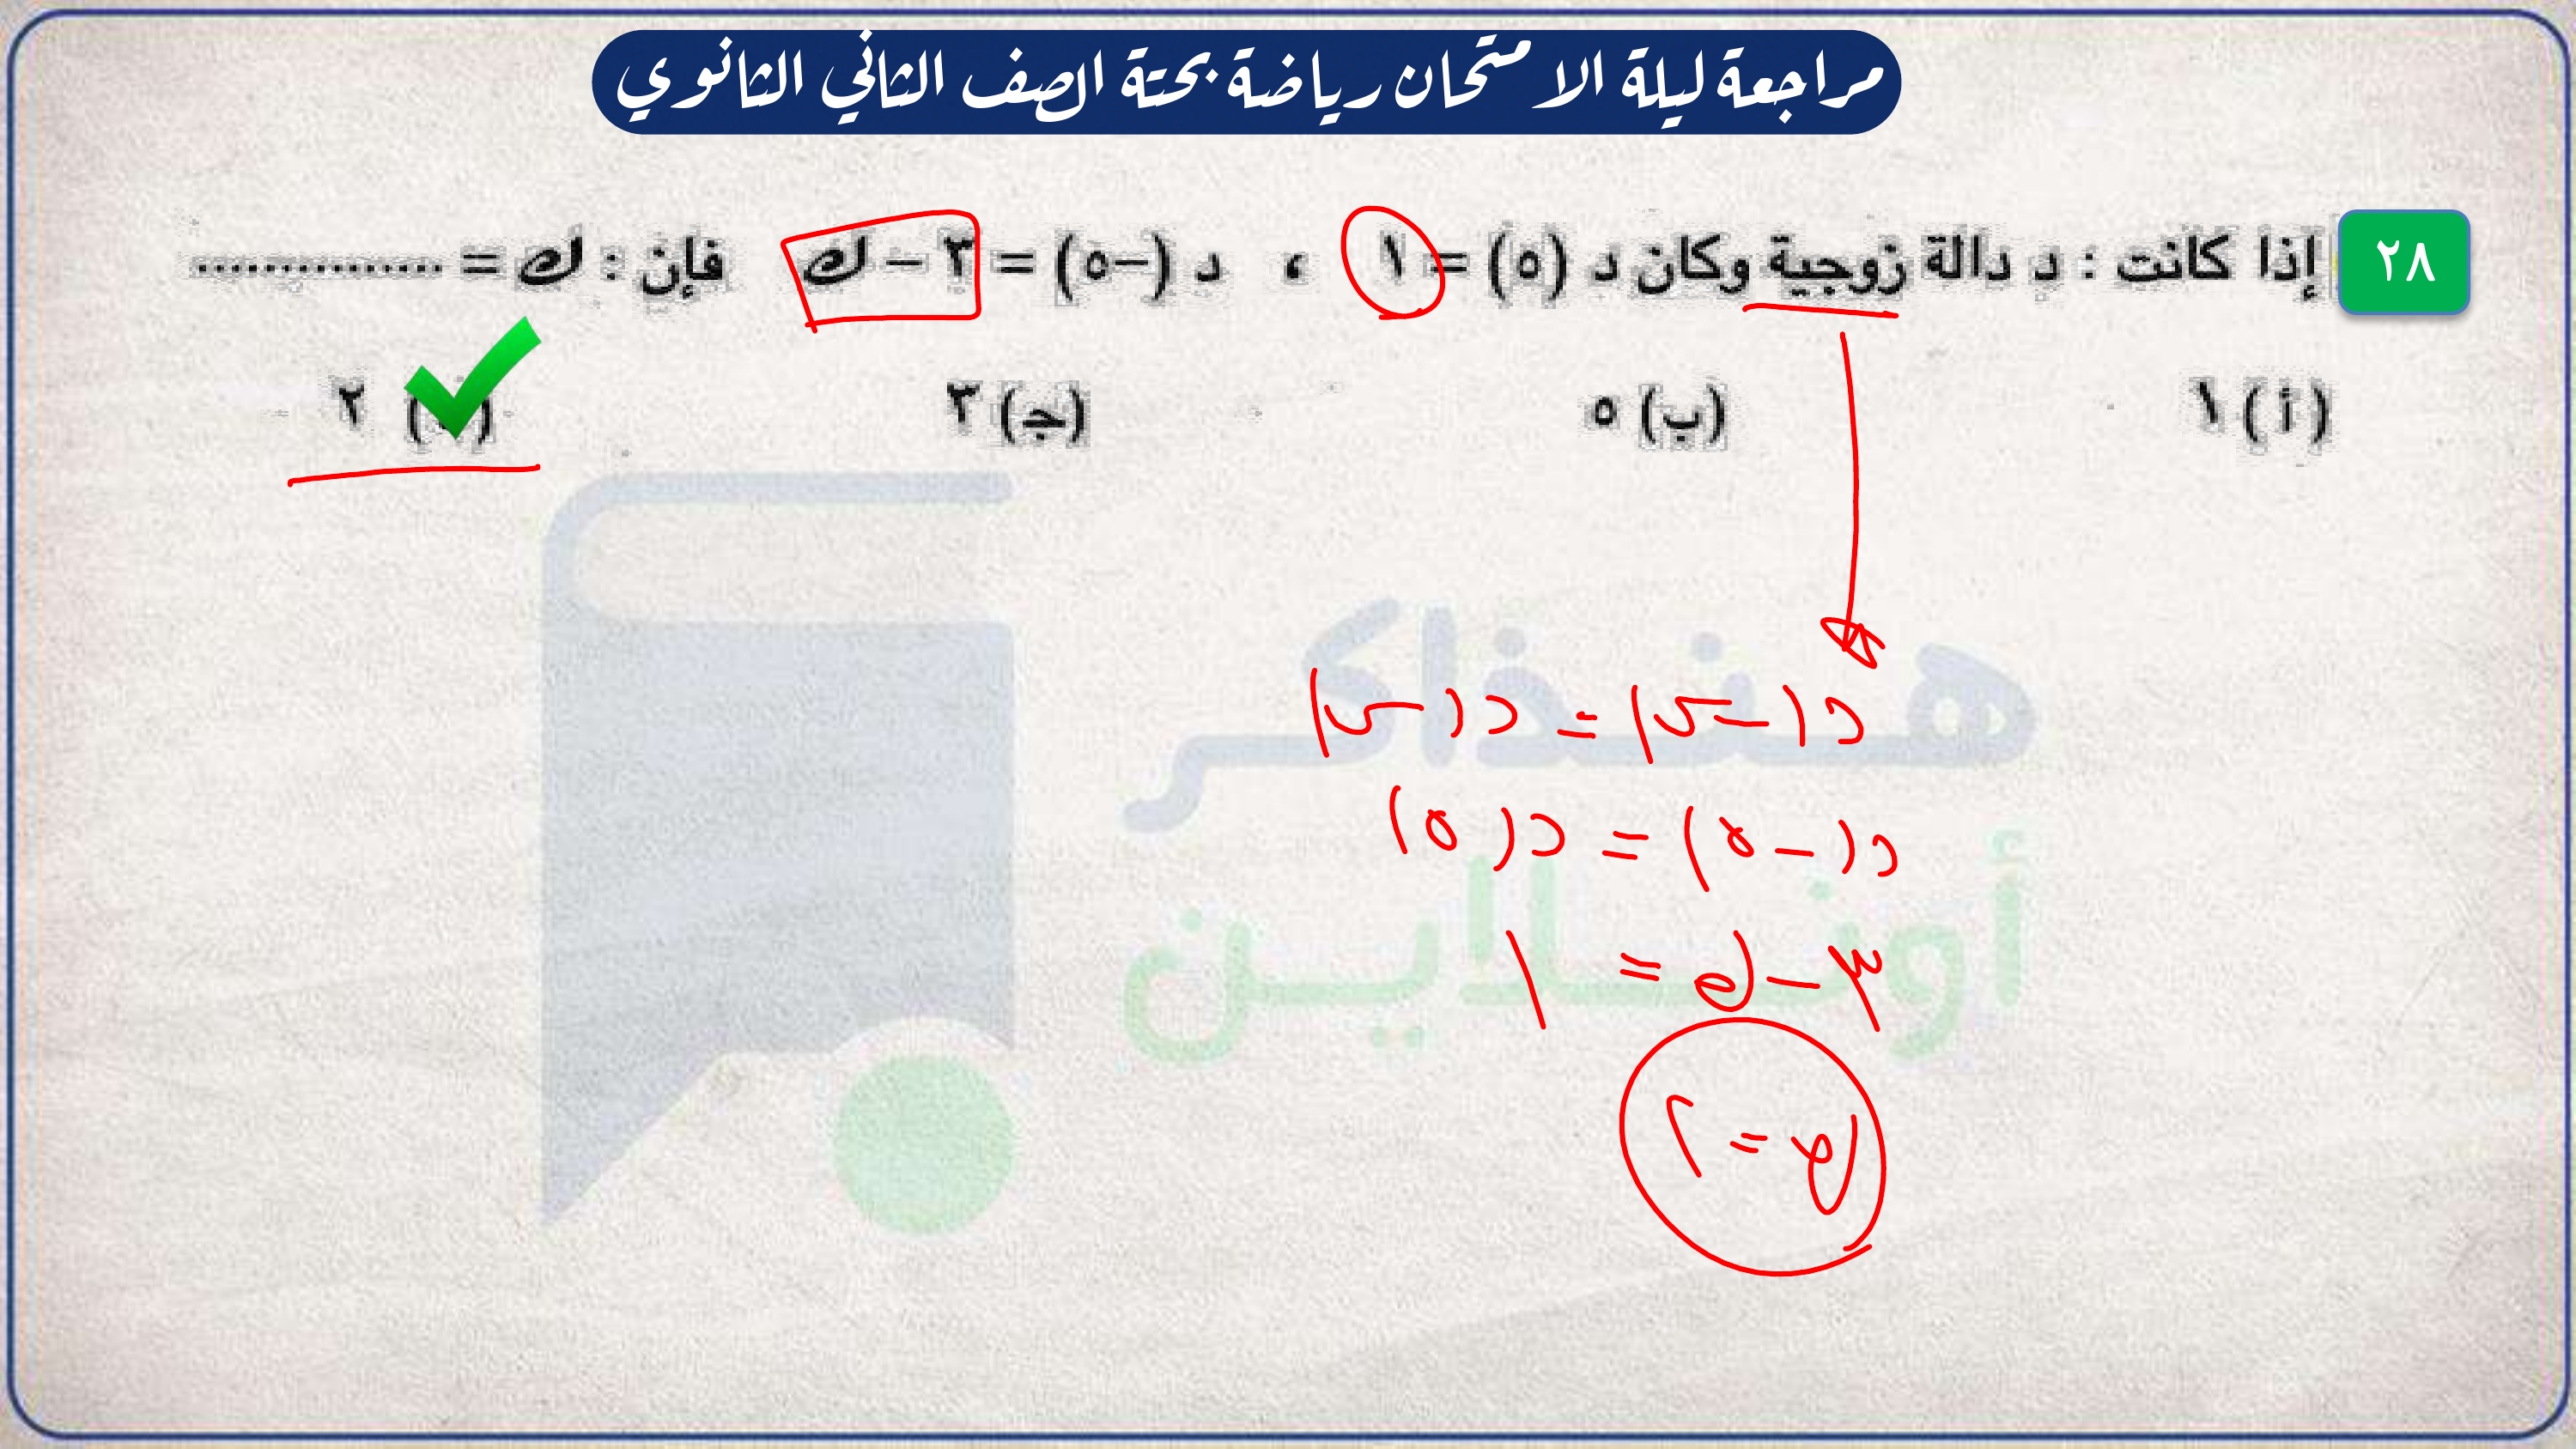 مراجعة ليلة الامتحان رياضة بحتة الصف الثاني الثانوي
٢٨ إذا كانت : د دالة زوجية وكان د (٥) = ١ ، د (-٥) = ٣ - ك فإن : ك = ...............
(أ) ١ (ب) ٥ (جـ) ٣ ( ) ٢
د(-س) = د(س)
د(-٥) = د(٥)
٣ - ك = ١
ك = ٢
هنذاكر
أونلاين